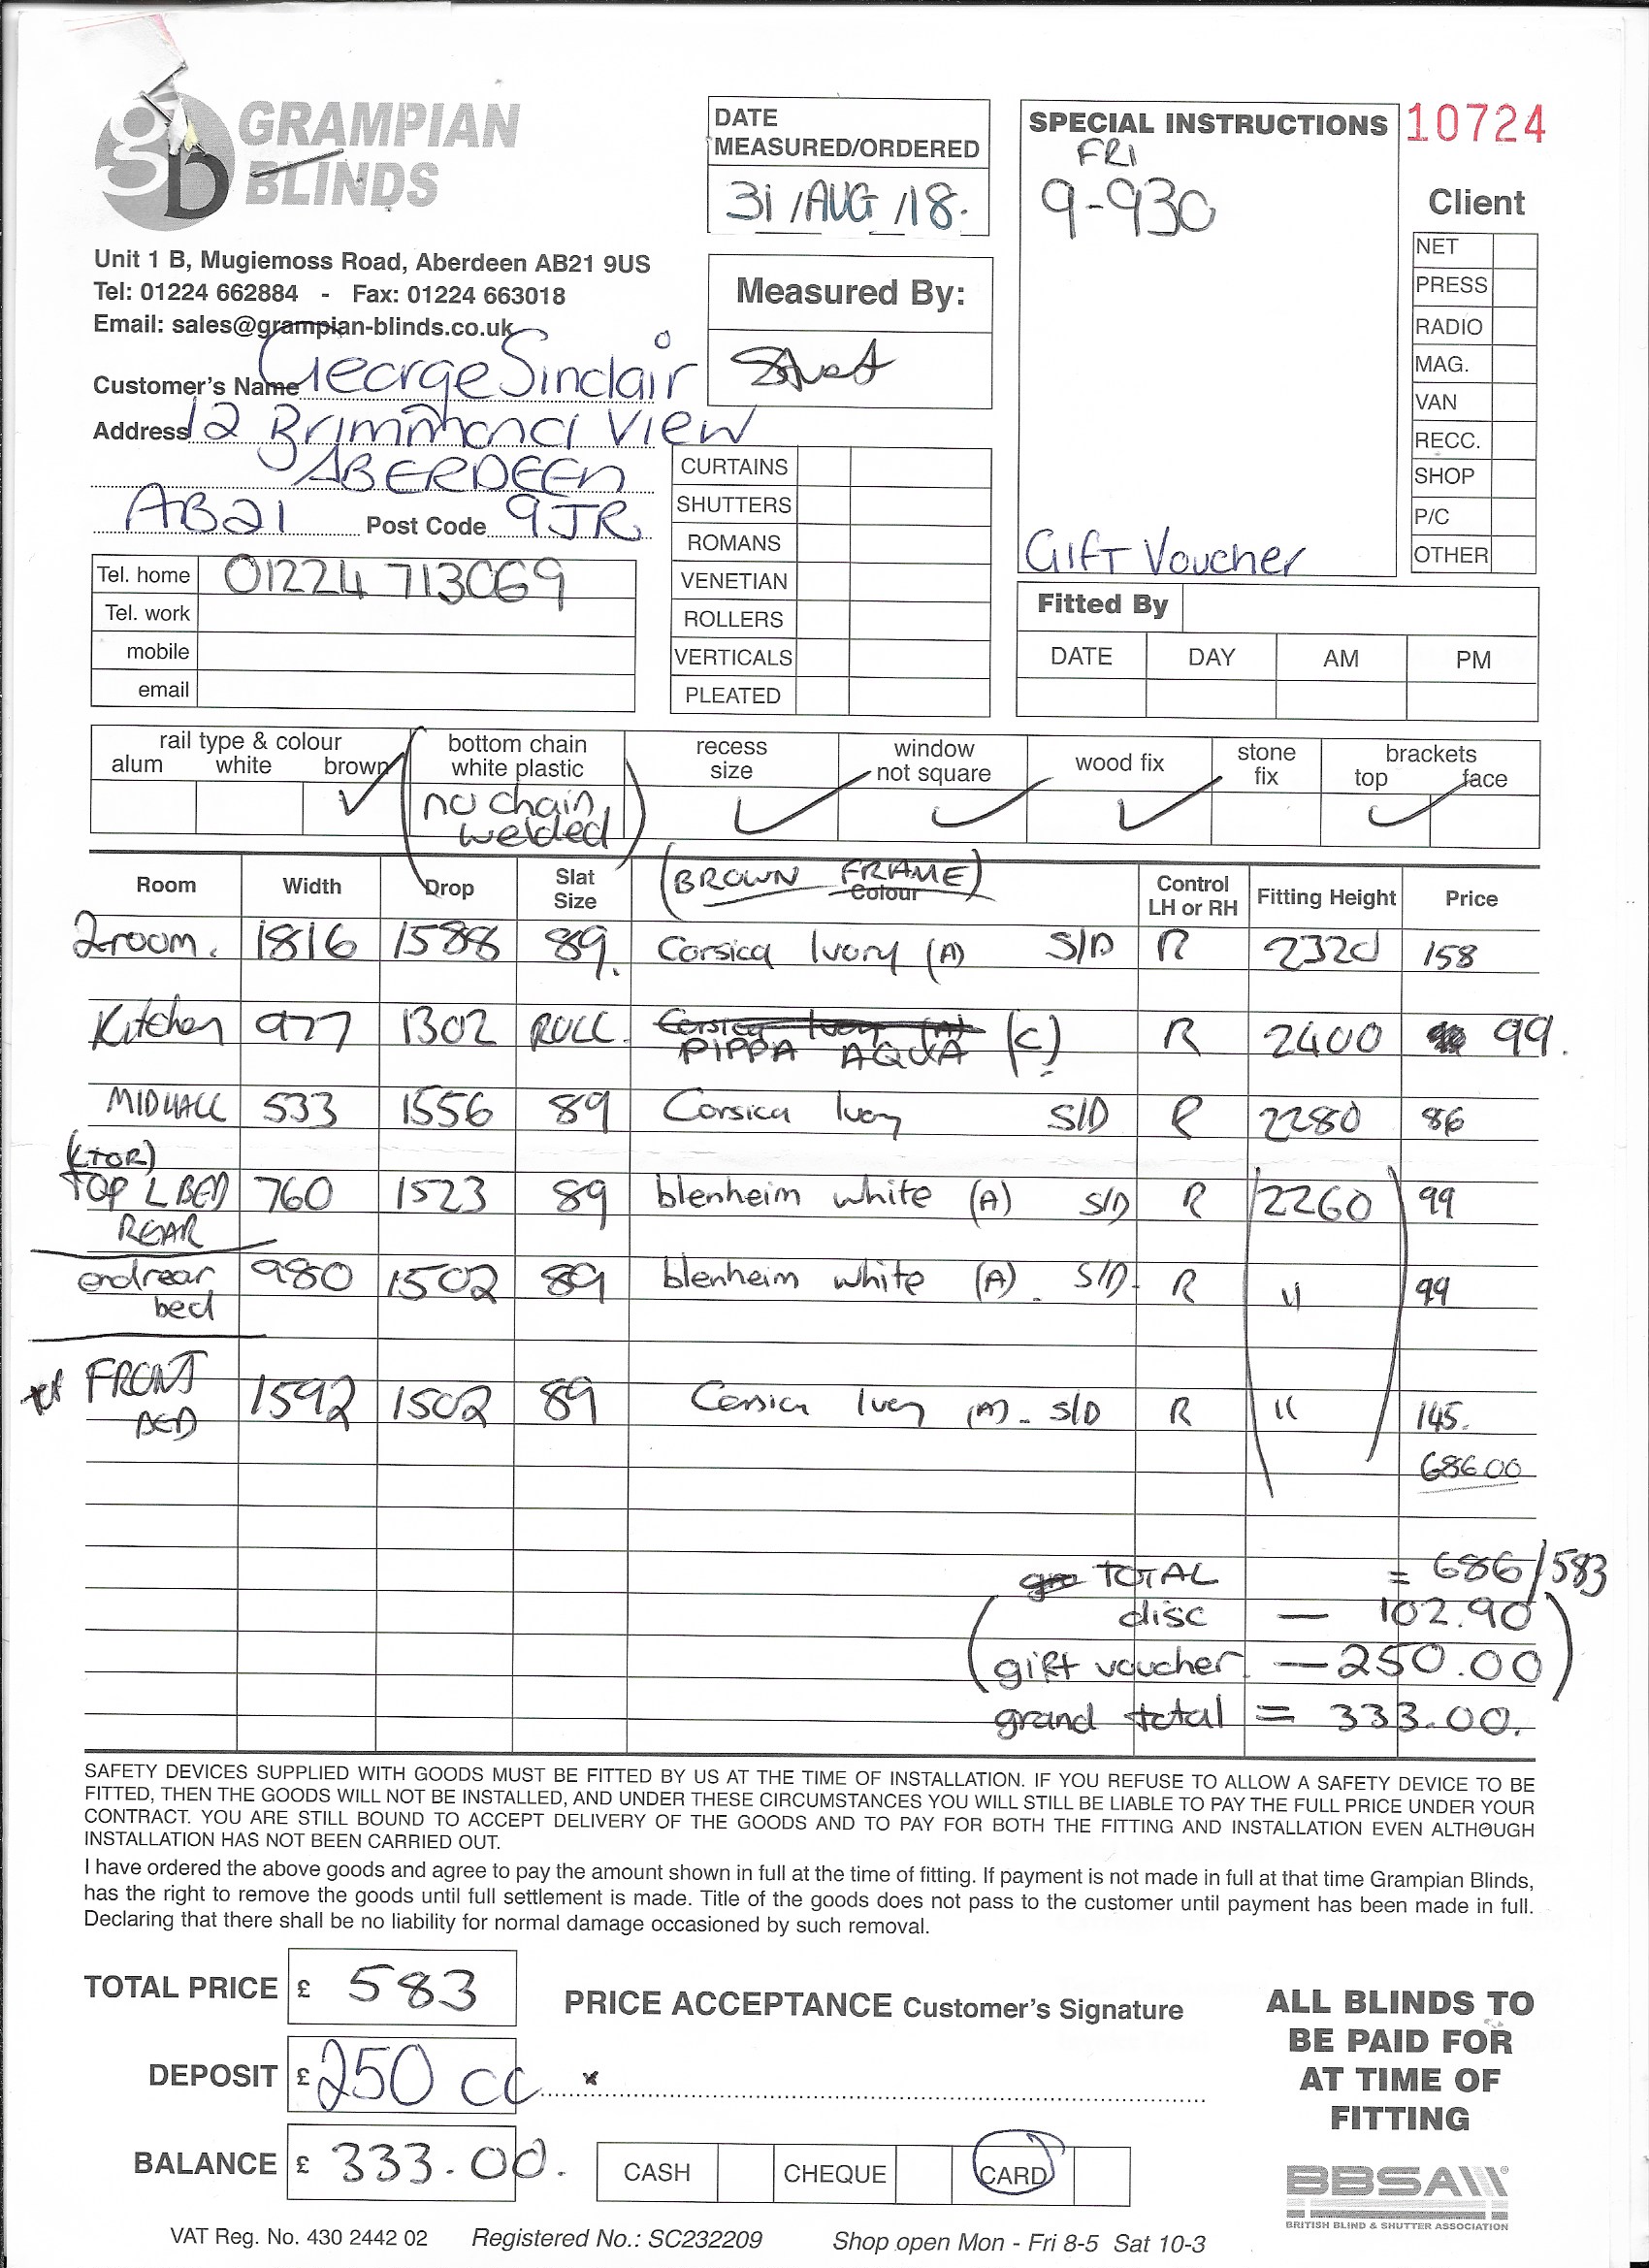 gb GRAMPIAN
BLINDS
Unit 1 B, Mugiemoss Road, Aberdeen AB21 9US
Tel: 01224 662884 - Fax: 01224 663018
Email: sales@grampian-blinds.co.uk
Customer's Name George Sinclair
Address 12 Brimmond View
ABERDEEN
AB21 Post Code 9JR
Tel. home 01224 713069
Tel. work
mobile
email
DATE
MEASURED/ORDERED
31/AUG/18.
Measured By:
CURTAINS
SHUTTERS
ROMANS
VENETIAN
ROLLERS
VERTICALS
PLEATED
SPECIAL INSTRUCTIONS
FRI
9-930
GIFT Voucher
10724
Client
NET
PRESS
RADIO
MAG.
VAN
RECC.
SHOP
P/C
OTHER
Fitted By
DATE DAY AM PM
rail type & colour
alum white brown
bottom chain
white plastic
no chain,
welded
recess
size
window
not square
wood fix
stone
fix
brackets
top face
Room Width Drop Slat Size (BROWN FRAME) Colour Control LH or RH Fitting Height Price
2room. 1816 1588 89. Corsica Ivory (A) S/D R 2320 158
Kitchen 977 1302 ROLL Corsica Ivory (A) R 2400 99.
PIPPA AQUA (C)
MIDHALL 533 1556 89 Corsica Ivory S/D R 2280 86
TOP L BED 760 1523 89 blenheim white (A) S/D R 2260 99
REAR
end rear 980 1502 89 blenheim white (A). S/D. R " 99
bed
FRONT 1592 1502 89 Corsica Ivory (A). S/D R " 145.
BED
686.00
TOTAL = 686/583
disc — 102.90
gift voucher — 250.00
grand total = 333.00.
SAFETY DEVICES SUPPLIED WITH GOODS MUST BE FITTED BY US AT THE TIME OF INSTALLATION. IF YOU REFUSE TO ALLOW A SAFETY DEVICE TO BE
FITTED, THEN THE GOODS WILL NOT BE INSTALLED, AND UNDER THESE CIRCUMSTANCES YOU WILL STILL BE LIABLE TO PAY THE FULL PRICE UNDER YOUR
CONTRACT. YOU ARE STILL BOUND TO ACCEPT DELIVERY OF THE GOODS AND TO PAY FOR BOTH THE FITTING AND INSTALLATION EVEN ALTHOUGH
INSTALLATION HAS NOT BEEN CARRIED OUT.
I have ordered the above goods and agree to pay the amount shown in full at the time of fitting. If payment is not made in full at that time Grampian Blinds,
has the right to remove the goods until full settlement is made. Title of the goods does not pass to the customer until payment has been made in full.
Declaring that there shall be no liability for normal damage occasioned by such removal.
TOTAL PRICE £ 583
DEPOSIT £ 250 cc
BALANCE £ 333.00.
PRICE ACCEPTANCE Customer's Signature
x
CASH CHEQUE CARD
ALL BLINDS TO
BE PAID FOR
AT TIME OF
FITTING
BBSA
BRITISH BLIND & SHUTTER ASSOCIATION
VAT Reg. No. 430 2442 02 Registered No.: SC232209 Shop open Mon - Fri 8-5 Sat 10-3